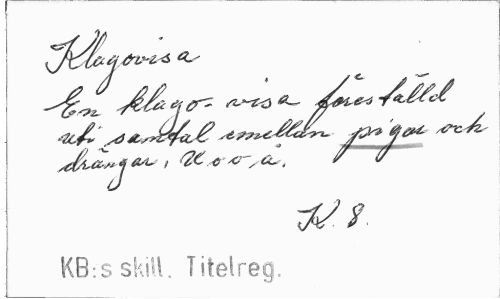 Klagovisa
En klago-visa föreställd
uti samtal emellan pigor och
drängar, U o o å.
K. 8.
KB:s skill. Titelreg.